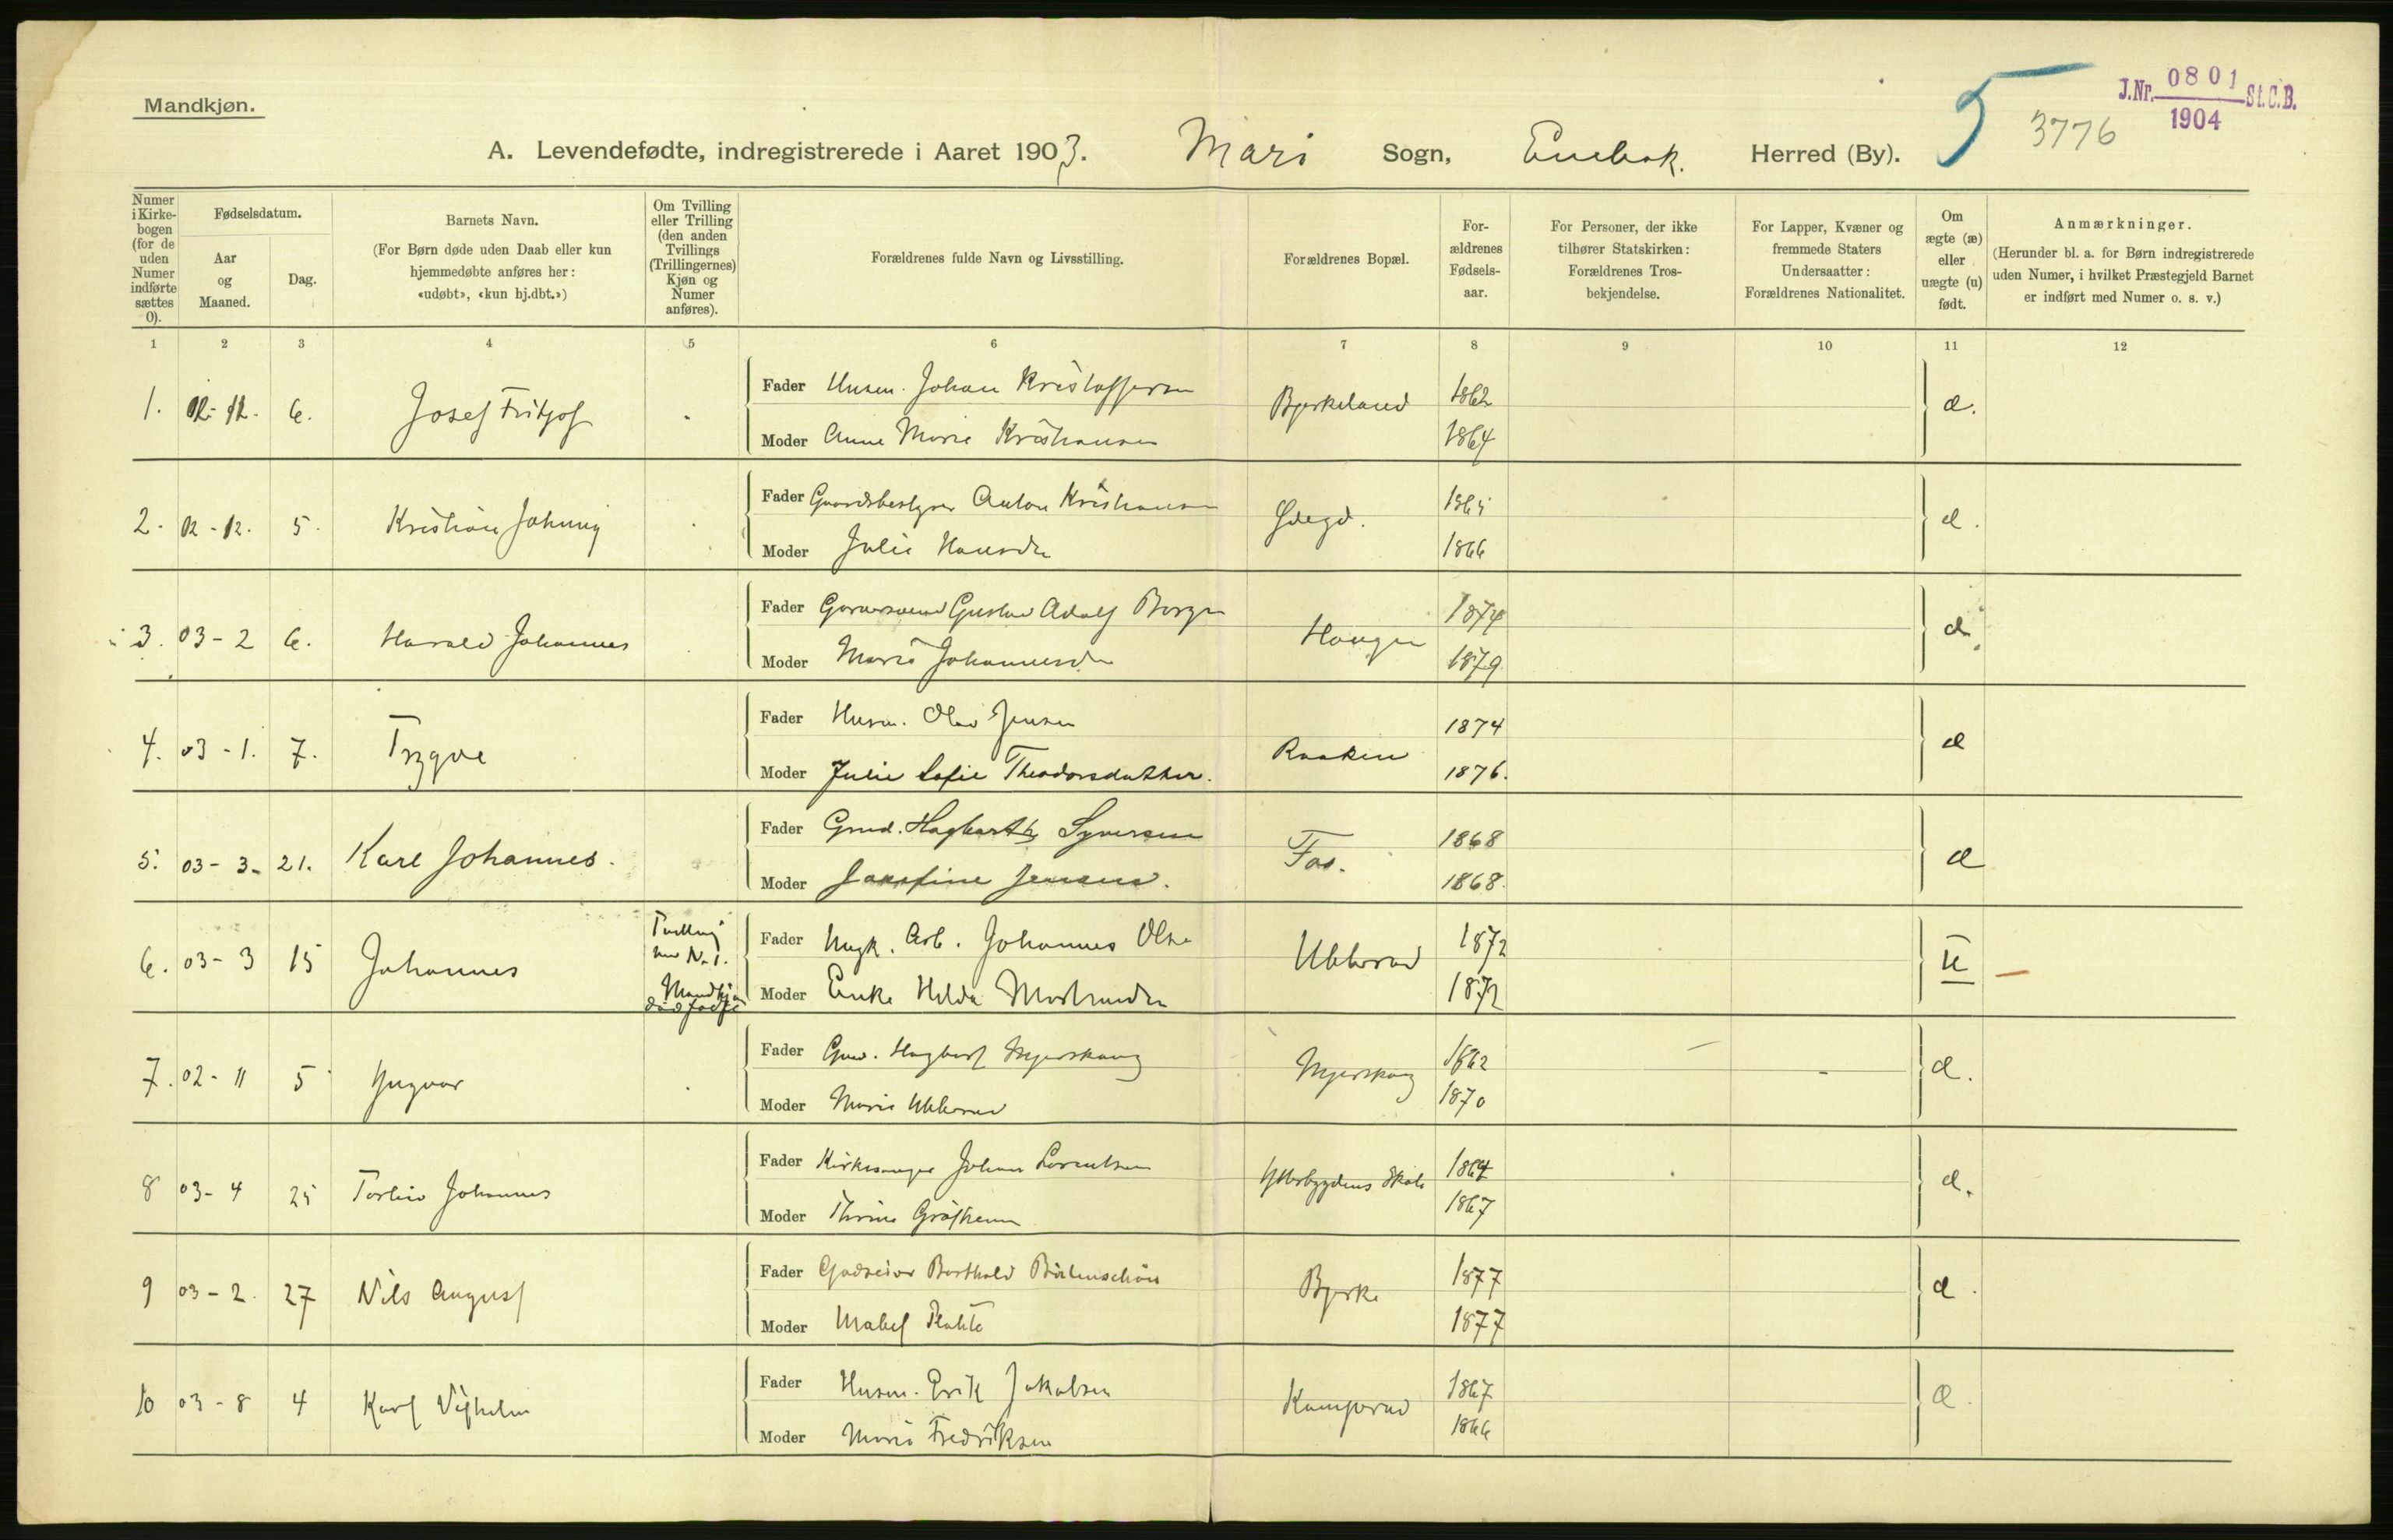 Mandkjøn.
J.Nr. 0801 St.C.B.
1904
5
3776
A. Levendefødte, indregistrerede i Aaret 1903. Mari Sogn, Enebak. Herred (By).
Numer i Kirkebogen (for de uden Numer indførte sættes 0).
Fødselsdatum.
Aar og Maaned.
Dag.
Barnets Navn.
(For Børn døde uden Daab eller kun hjemmedøbte anføres her: «udøbt», «kun hj.dbt.»)
Om Tvilling eller Trilling (den anden Tvillings (Trillingernes) Kjøn og Numer anføres).
Forældrenes fulde Navn og Livsstilling.
Forældrenes Bopæl.
Forældrenes Fødselsaar.
For Personer, der ikke tilhører Statskirken: Forældrenes Trosbekjendelse.
For Lapper, Kvæner og fremmede Staters Undersaatter: Forældrenes Nationalitet.
Om ægte (æ) eller uægte (u) født.
Anmærkninger.
(Herunder bl. a. for Børn indregistrerede uden Numer, i hvilket Præstegjeld Barnet er indført med Numer o. s. v.)
1 2 3 4 5 6 7 8 9 10 11 12
1. 02-12. 6. Josef Fritjof Fader Husm. Johan Kristoffersen Bjerkeland 1862 æ.
Moder Anne Marie Kristiansen 1864
2. 02-12. 5. Kristian Johnny Fader Gaardsbestyrer Anton Kristiansen 1865 æ.
Moder Julie Hansdr 1866
3. 03-2 6. Harald Johannes Fader Garversvend Gustav Adolf Borgen Haugen 1874 æ.
Moder Marie Johannesdr 1879
4. 03-1. 7. Trygve Fader Husm. Olav Jensen Raaken 1874 æ
Moder Julie Sofie Theodorsdatter. 1876.
5. 03-3- 21. Karl Johannes. Fader Grmd. Hagbarth Syversen Fos. 1868 æ
Moder Josefine Jensen. 1868.
6. 03-3 15 Johannes Tvilling med No 1. Mandkjøn dødfødt Fader Ungk. Arb. Johannes Olsen Ubberud 1872 u
Moder Enke Hilda 1872
7. 02-11 5 Yngvar Fader Grmd. Hagbart Mjerskaug Mjerskaug 1862 æ.
Moder Marie Ubberud 1870
8 03-4 25 Torleiv Johannes Fader Kirkesanger Johan Lorentsen Ytterbygdens Skole 1864 æ.
Moder Thrine 1867
9 03-2. 27 Nils August Fader Godseier Barthold Bjerke 1877 æ.
Moder Mabel Plahte 1877
10 03-8 4 Karl Vilhelm Fader Husm. Erik Jakobsen Kamperud 1867 æ.
Moder Marie Fredriksen 1866